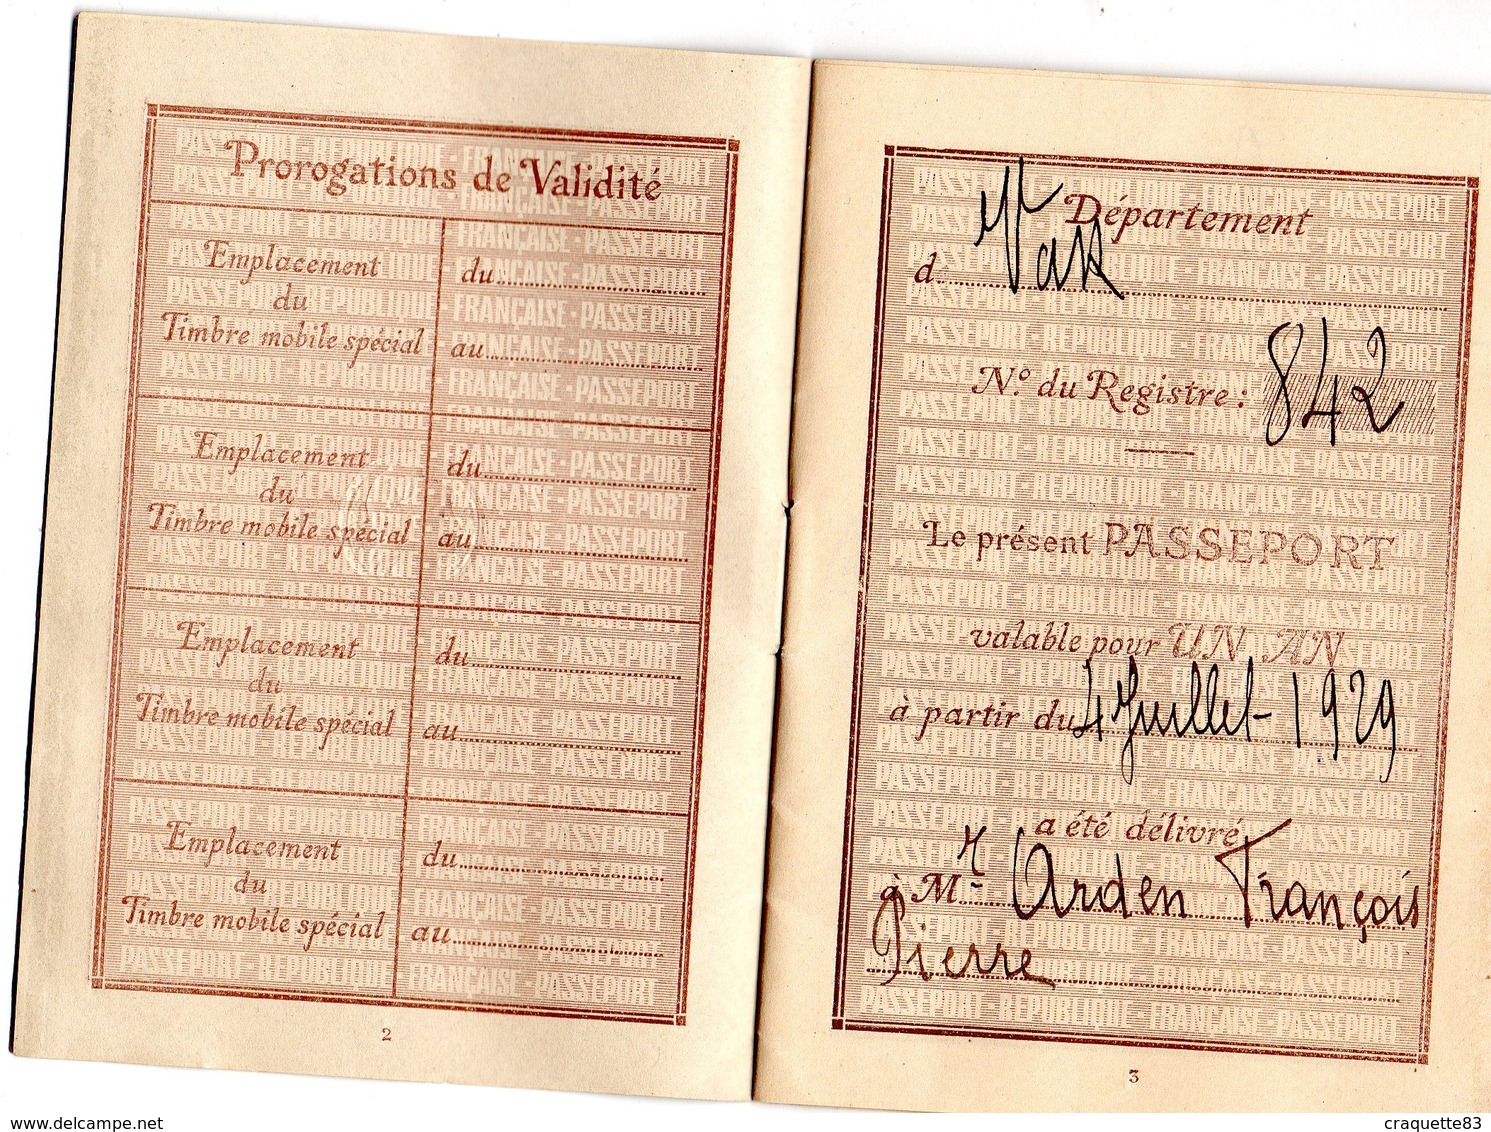 Prorogations de Validité
Emplacement
du
Timbre mobile spécial
du
au
Emplacement
du
Timbre mobile spécial
du
au
Emplacement
du
Timbre mobile spécial
du
au
Emplacement
du
Timbre mobile spécial
du
au
2
Département
d Var
N.º du Registre : 842
Le présent PASSEPORT
valable pour UN AN
à partir du 4 Juillet 1929
a été délivré
à M.r Arden François
Pierre
3
www.delcampe.net
craquette83